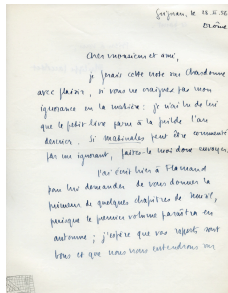 Grignan, le 28.II.56
Drôme
Cher monsieur et ami,
je ferais cette note sur Chardonne
avec plaisir, si vous ne craignez pas mon
ignorance en la matière : je n'ai lu de lui
que le petit livre paru à la guilde l'an
dernier. Si Matinales peut être commenté
par un ignorant, faites-le moi donc envoyer.
J'ai écrit hier à Flamand
pour lui demander de vous donner la
primeur de quelques chapitres de Musil,
puisque le premier volume paraîtra en
automne ; j'espère que vos rapports sont
bons et que vous vous entendrez sur